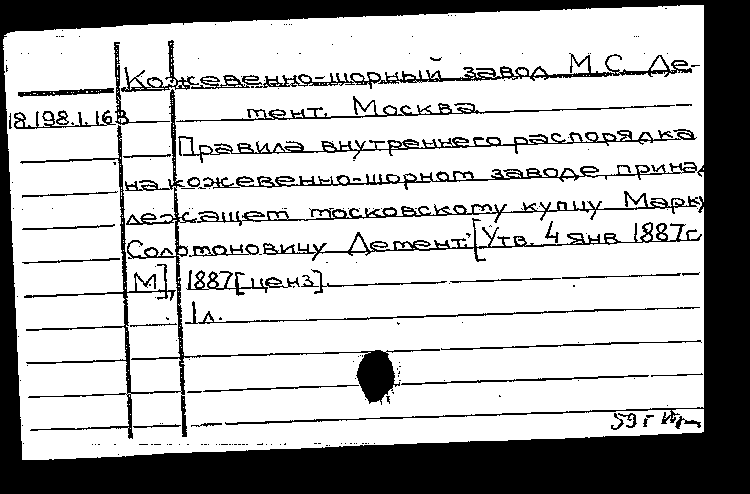 Кожевенно-шорный завод М.С. Де-
мент. Москва
18.198.1.163
Правила внутреннего распорядка
на кожевенно-шорном заводе, принад
лежащем московскому купцу Марку
Соломоновичу Демент. [Утв. 4 янв 1887г.
М], 1887 [ценз].
1 л.
59 г